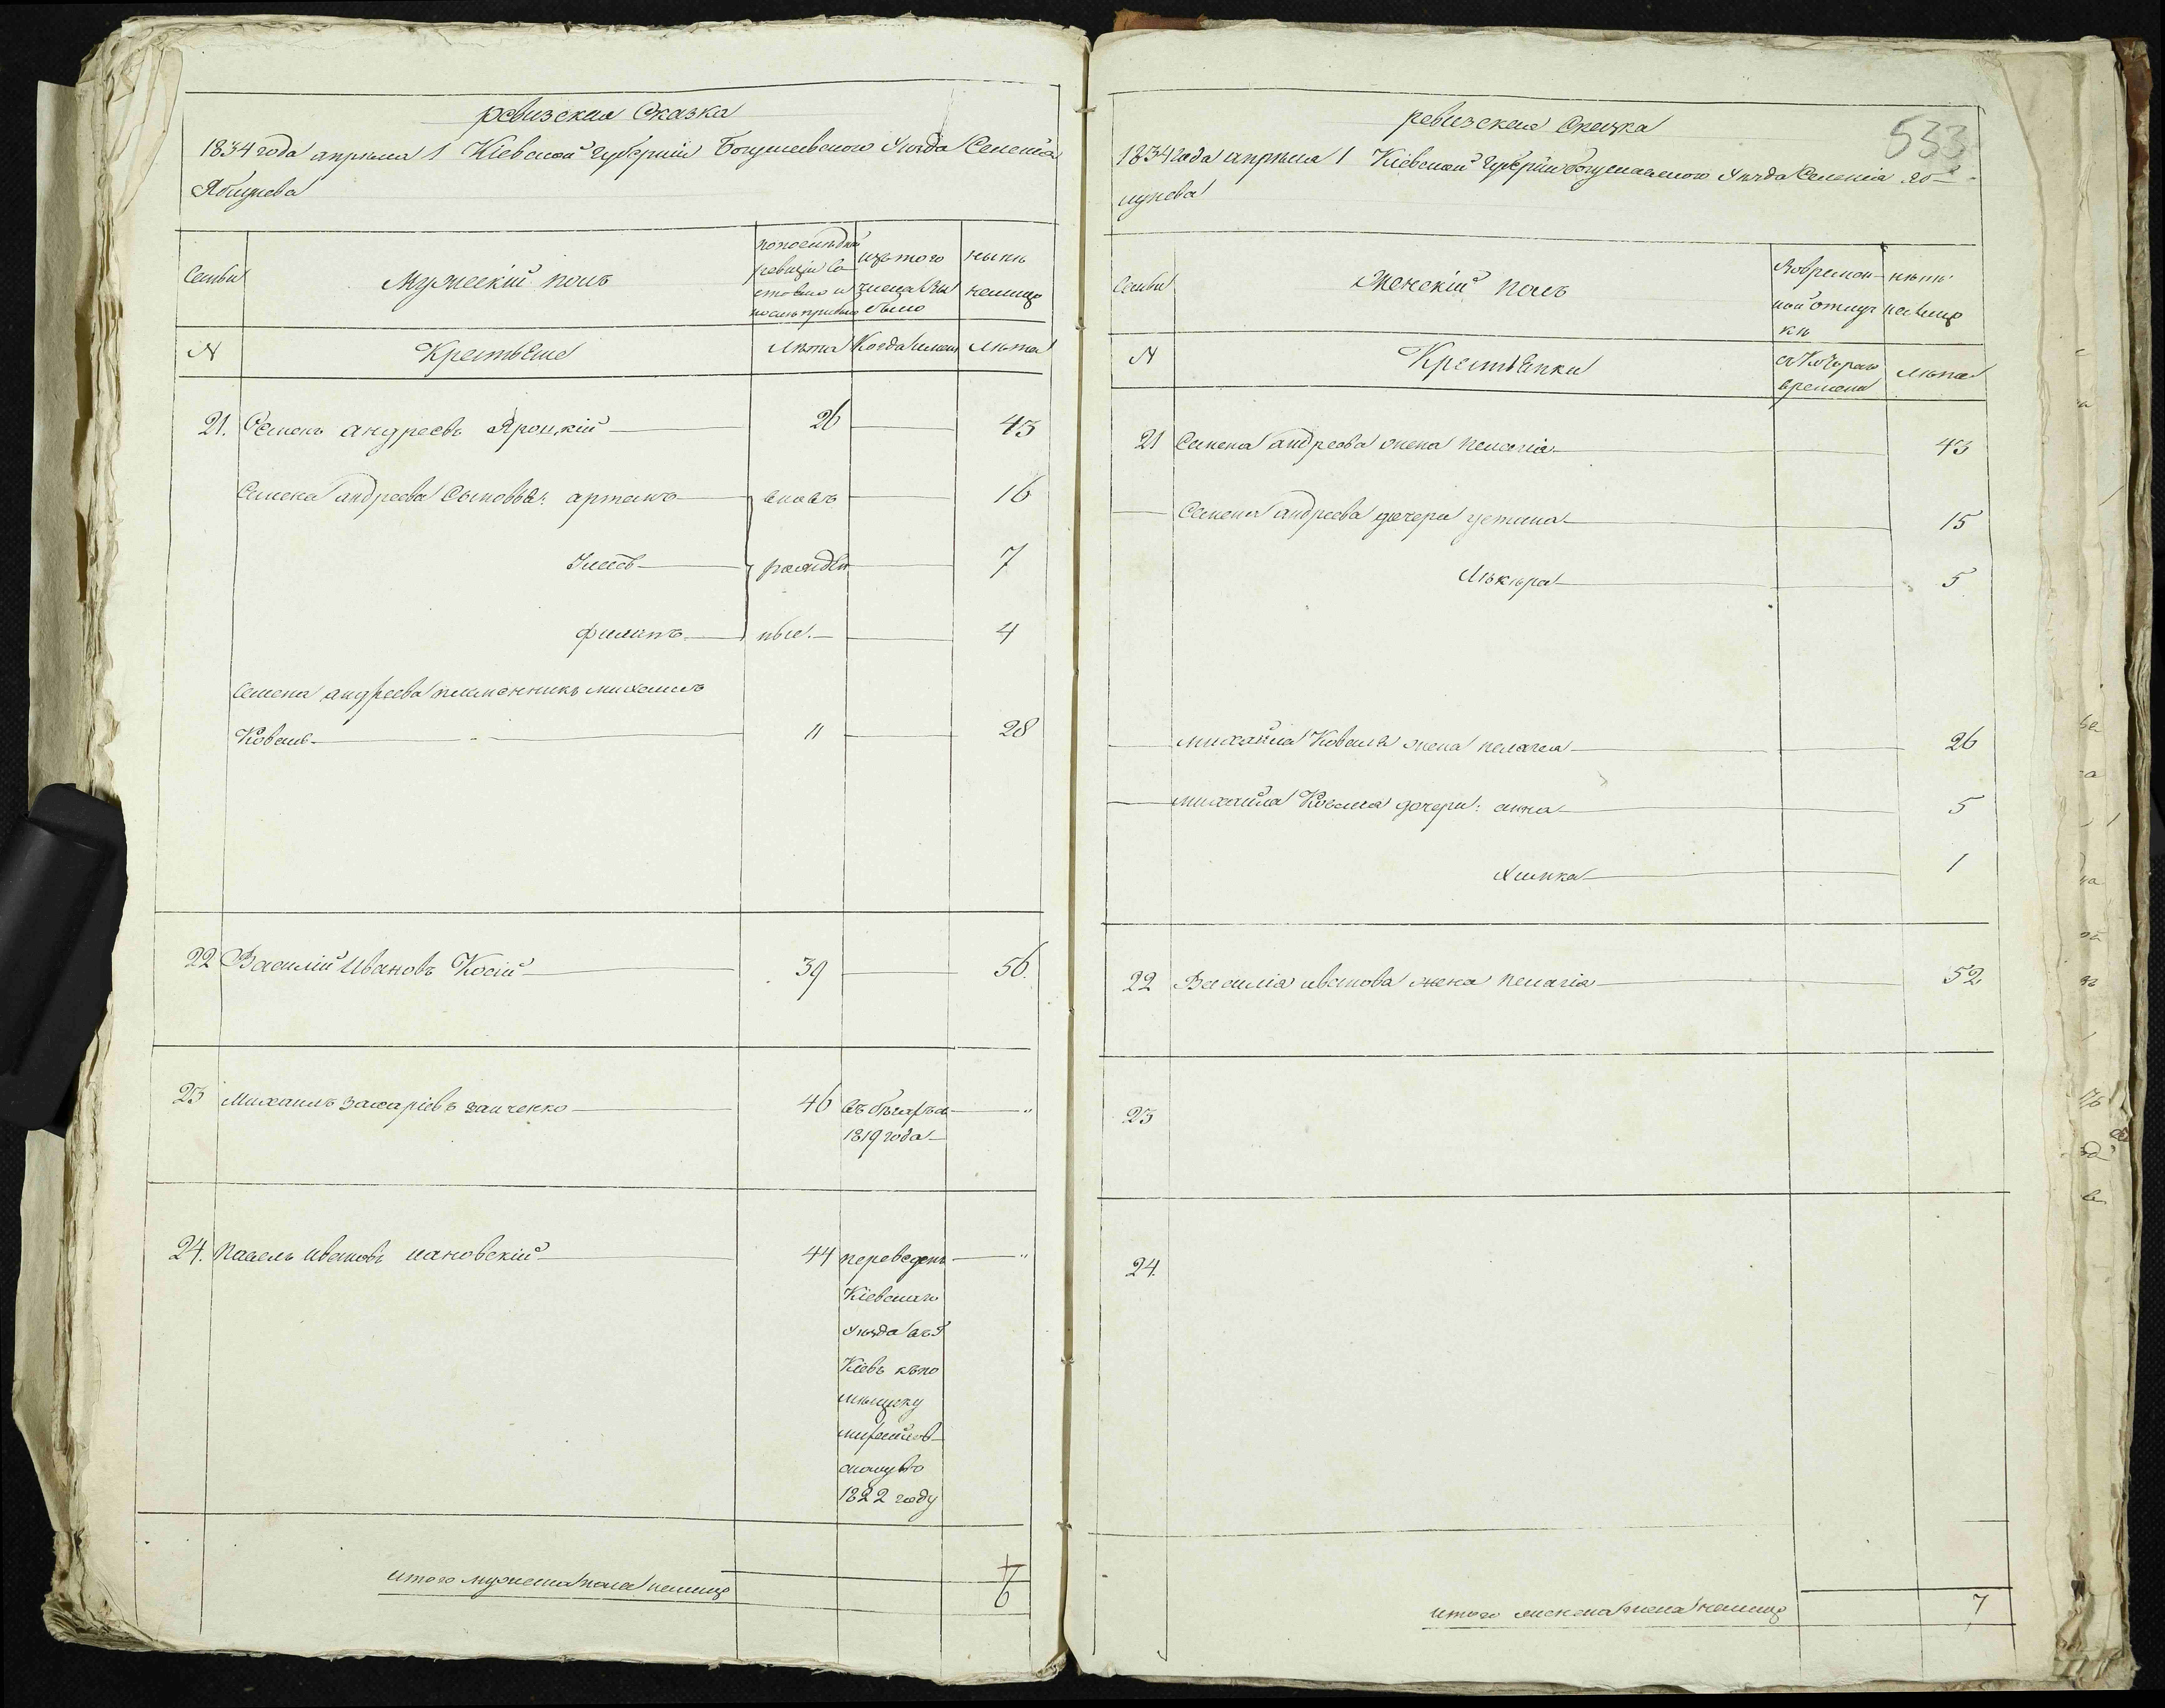 ревизская Сказка
1834 года апрѣля 1 Кіевской Губерніи Богуславского Уѣзда Селенія
Яблунева
Семьи
Мужескій полъ
по послѣдней
ревизіи со
стояло и
послѣ прибыло
изъ того
числа вы
было
нынѣ
на лицо
N
Крестьяне
Лѣта
Когда именно
Лѣта
21. Семенъ андреевъ Яроцкій 26 45
Семена андреева Сыновья: артемъ вновь 16
рожден 7
филипъ ные. 4
Семена андреева племенникъ михаилъ
Коваль 11 28
22 Василій Ивановъ Косій 39 56.
23 Михаилъ захаріевъ заиченко 46 въ бѣгахъ съ "
1819 года
24. павелъ ивановъ 44 переведенъ "
Кіевскаго
Уѣзда въ
Кіевъ къ по
мѣщику
1822 году
итого мужеска пола на лицо 7
6
ревизская Сказка
533
1834 года апрѣля 1 Кіевской Губерніи Богуславского Уѣзда Селенія Яб-
лунева
Семьи
Женскій полъ
Во времен-
ной отлуч
кѣ
нынѣ
на лицо
N
Крестьянки
съ котораго
времени
лѣта
21 Семена андреева жена пелагія 43
Семена андреева дочери устина 15
5
михайла Коваля жена пелагея 26
михайла Коваля дочери: анна 5
химка 1
22 Василія иванова жена пелагія 52
23
24.
итого женска пола на лицо 7